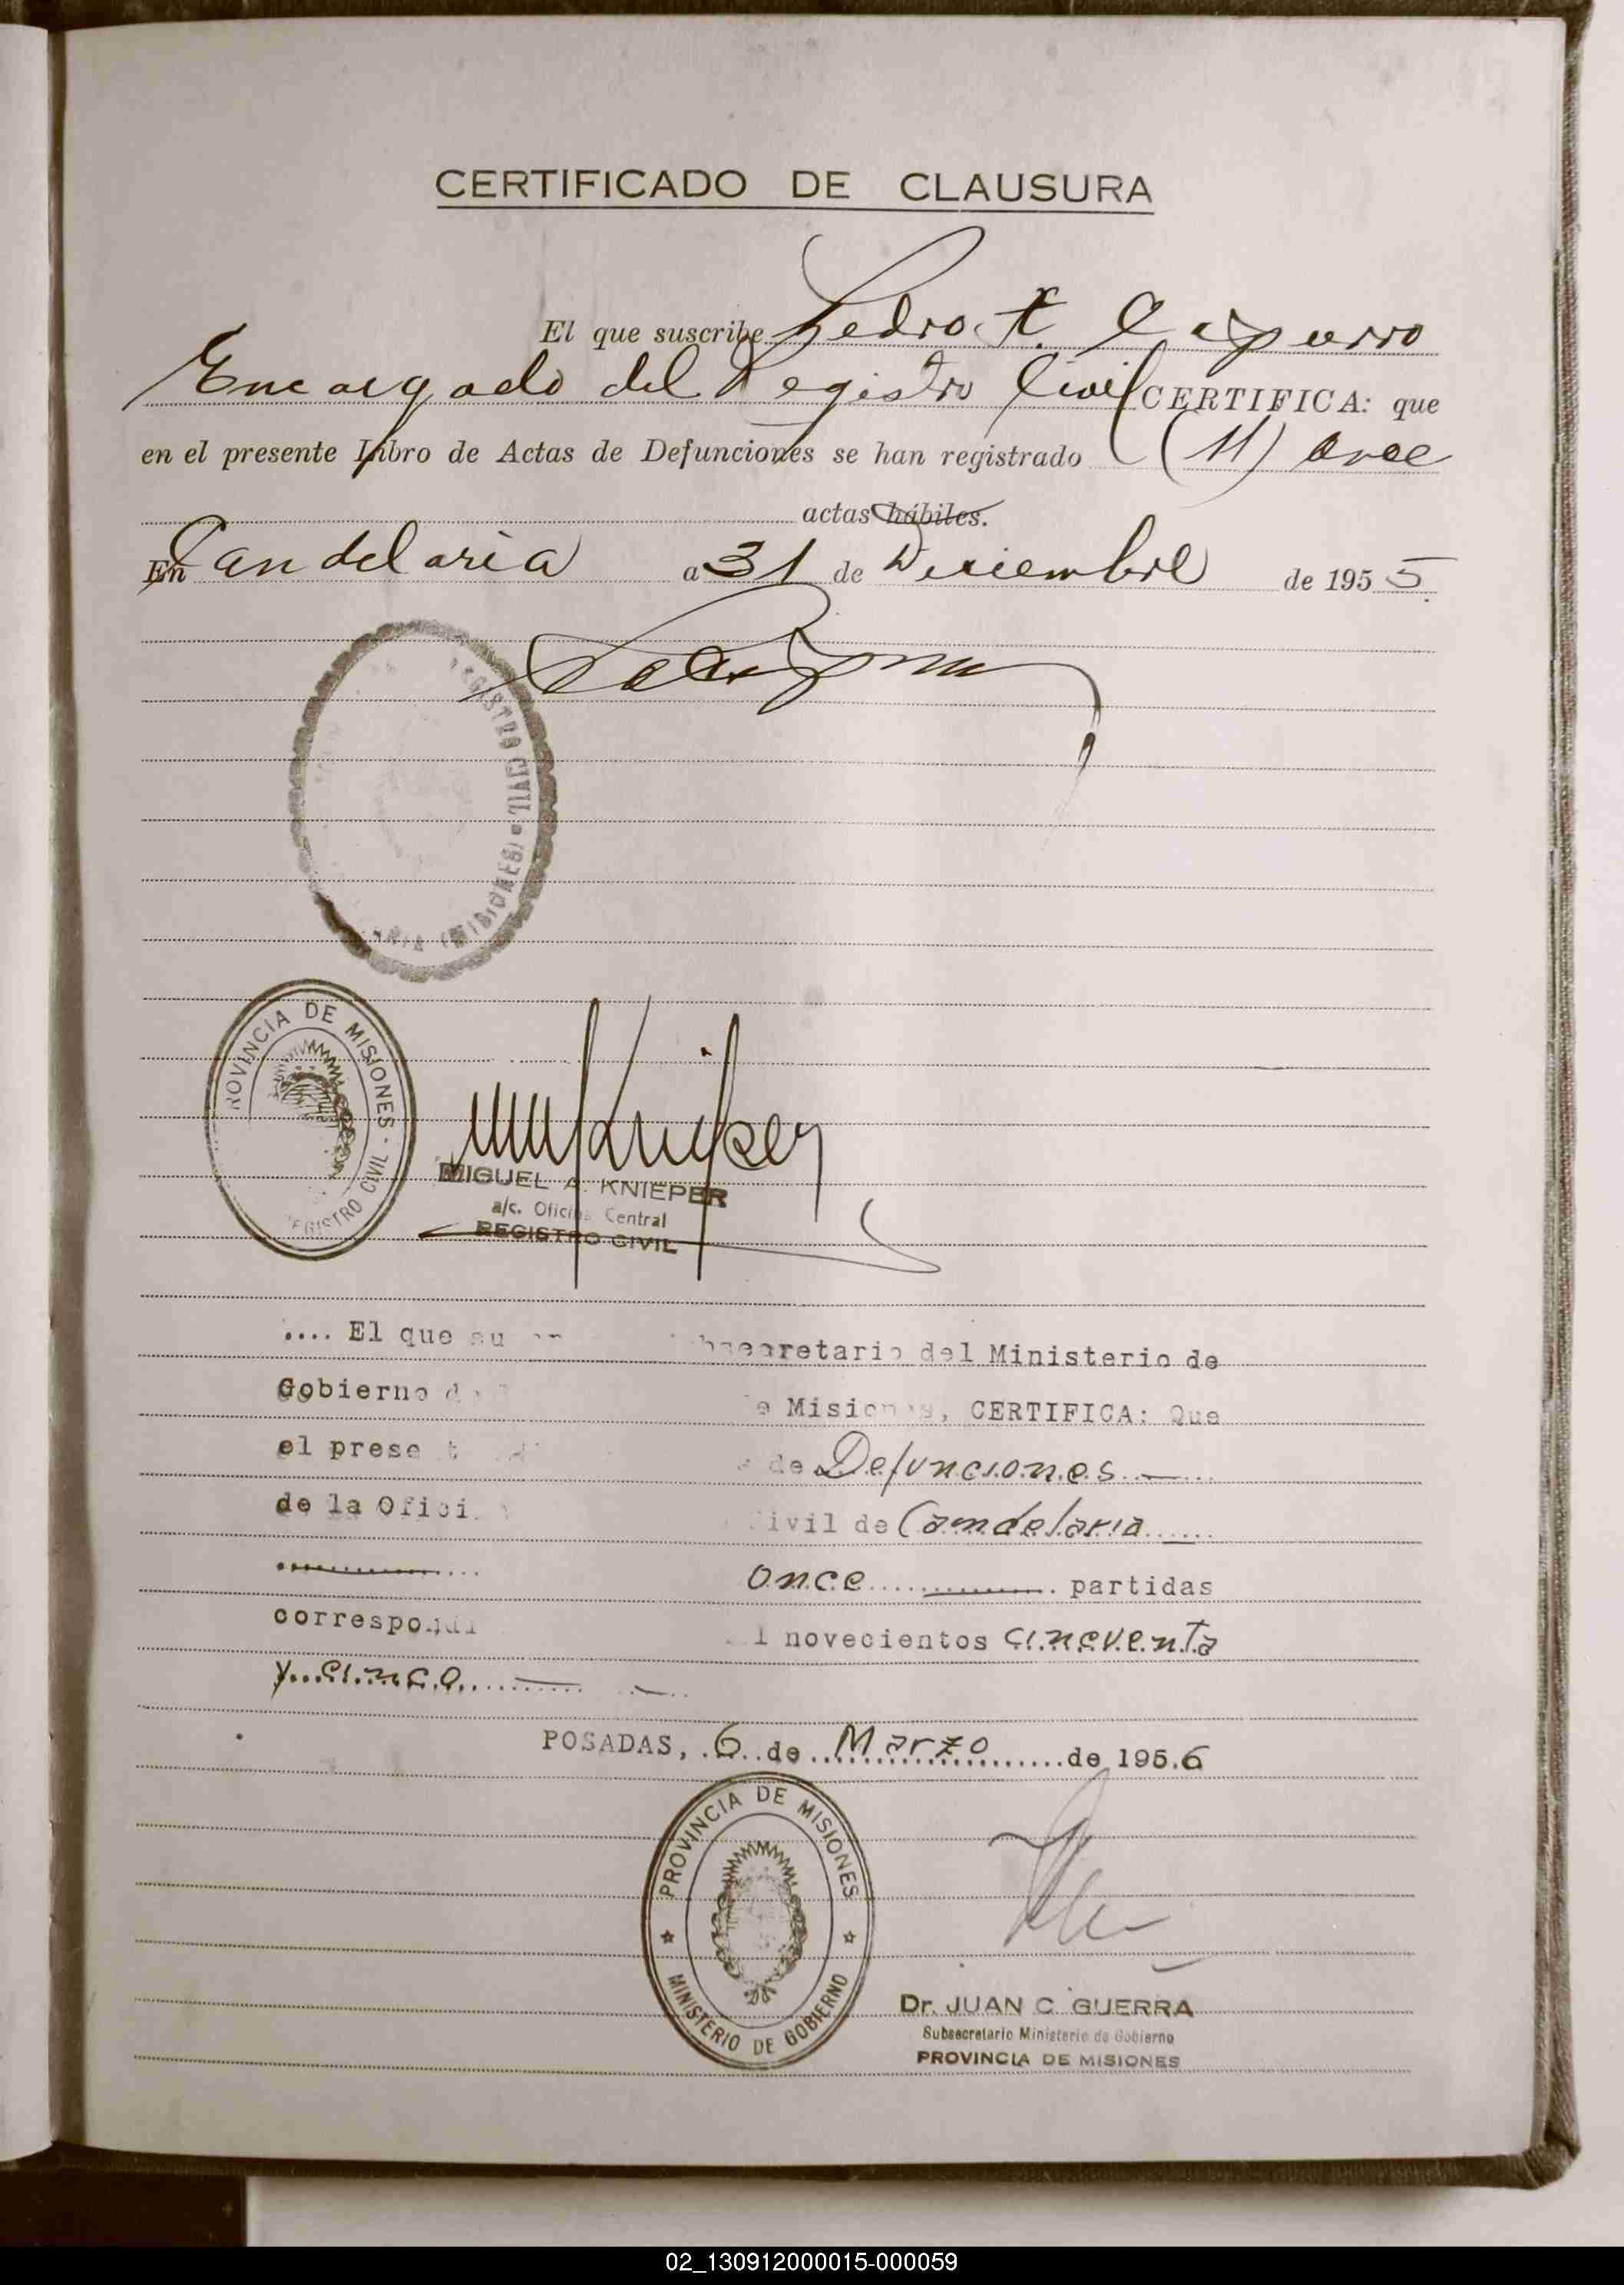 CERTIFICADO DE CLAUSURA
El que suscribe Pedro Caparro
Encargado del Registro Civil CERTIFICA: que
en el presente Libro de Actas de Defunciones se han registrado (11) once
actas hábiles.
En Candelaria a 31 de Diciembre de 1955.
REGISTRO CIVIL
(MISIONES)
PROVINCIA DE MISIONES - REGISTRO CIVIL
MIGUEL A. KNIEPER
a/c. Oficina Central
REGISTRO CIVIL
.... El que Subsecretario del Ministerio de
Gobierno de Misiones, CERTIFICA: Que
el presente de Defunciones
de la Oficina Civil de Candelaria
once partidas
correspondi novecientos cincuenta
y cinco
POSADAS, 6 de Marzo de 1956
PROVINCIA DE MISIONES
MINISTERIO DE GOBIERNO
Dr. JUAN C. GUERRA
Subsecretario Ministerio de Gobierno
PROVINCIA DE MISIONES
02_130912000015-000059